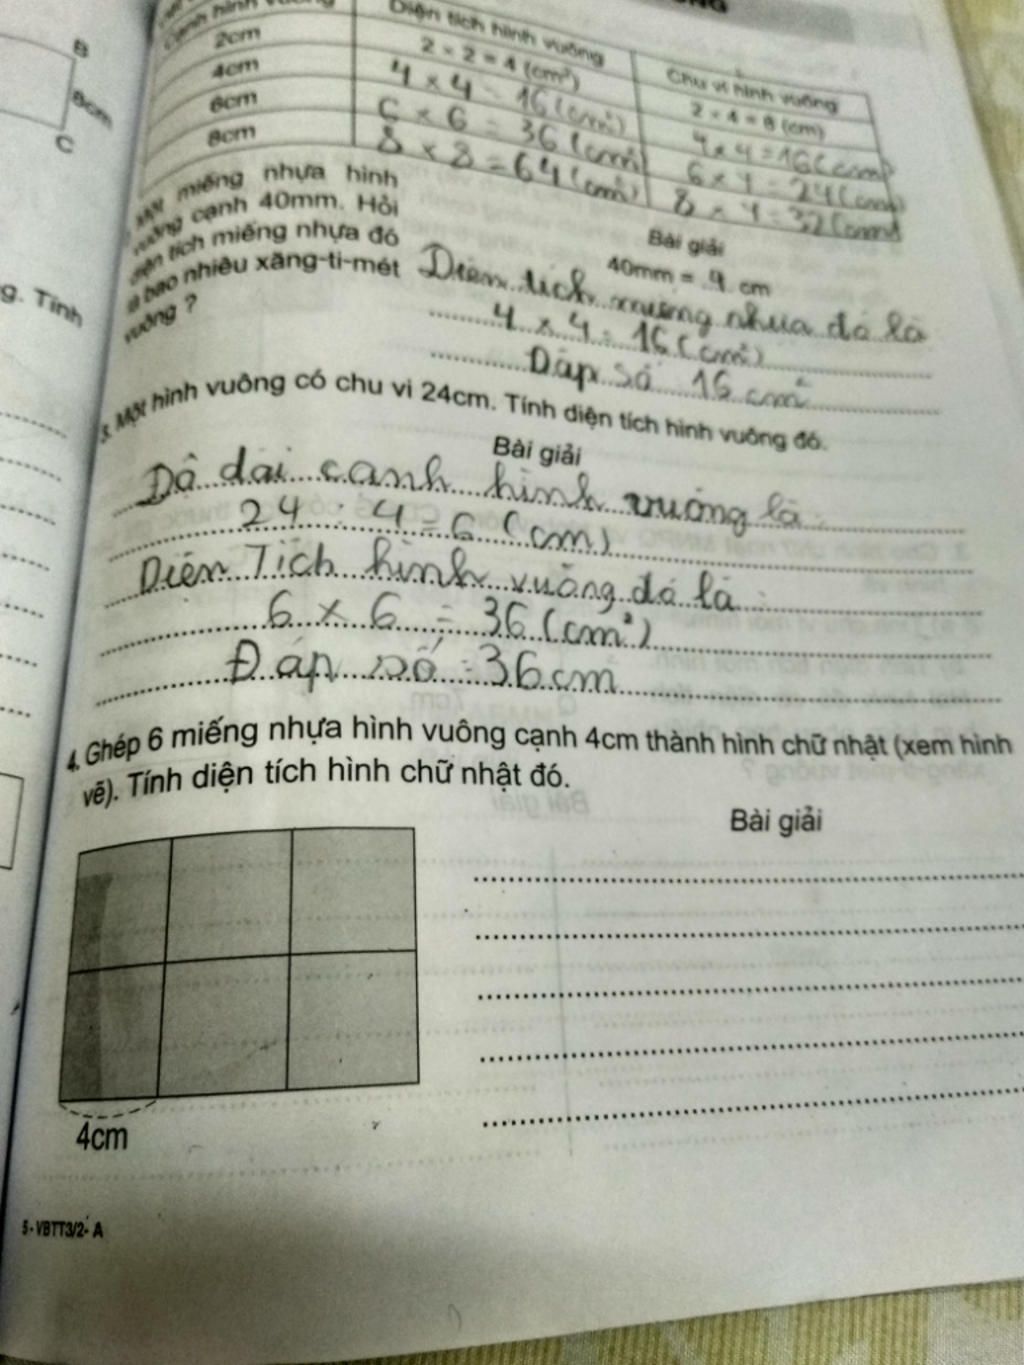 B
8cm
C
g. Tính
Cạnh hình vuông
Diện tích hình vuông
Chu vi hình vuông
2cm
2 × 2 = 4 (cm²)
2 × 4 = 8 (cm)
4cm
4 × 4 = 16 (cm²)
4 × 4 = 16 (cm)
6cm
6 × 6 = 36 (cm²)
6 × 4 = 24 (cm)
8cm
8 × 8 = 64 (cm²)
8 × 4 = 32 (cm)
Một miếng nhựa hình
vuông cạnh 40mm. Hỏi
diện tích miếng nhựa đó
là bao nhiêu xăng-ti-mét
vuông ?
Bài giải
40mm = 4 cm
Diện tích miếng nhựa đó là
4 × 4 = 16 (cm²)
Đáp số 16 cm²
3. Một hình vuông có chu vi 24cm. Tính diện tích hình vuông đó.
Bài giải
Độ dài cạnh hình vuông là
24 : 4 = 6 (cm)
Diên Tích hình vuông đó là
6 × 6 = 36 (cm²)
Đáp số : 36cm
4. Ghép 6 miếng nhựa hình vuông cạnh 4cm thành hình chữ nhật (xem hình
vẽ). Tính diện tích hình chữ nhật đó.
Bài giải
4cm
5 - VBTT3/2- A